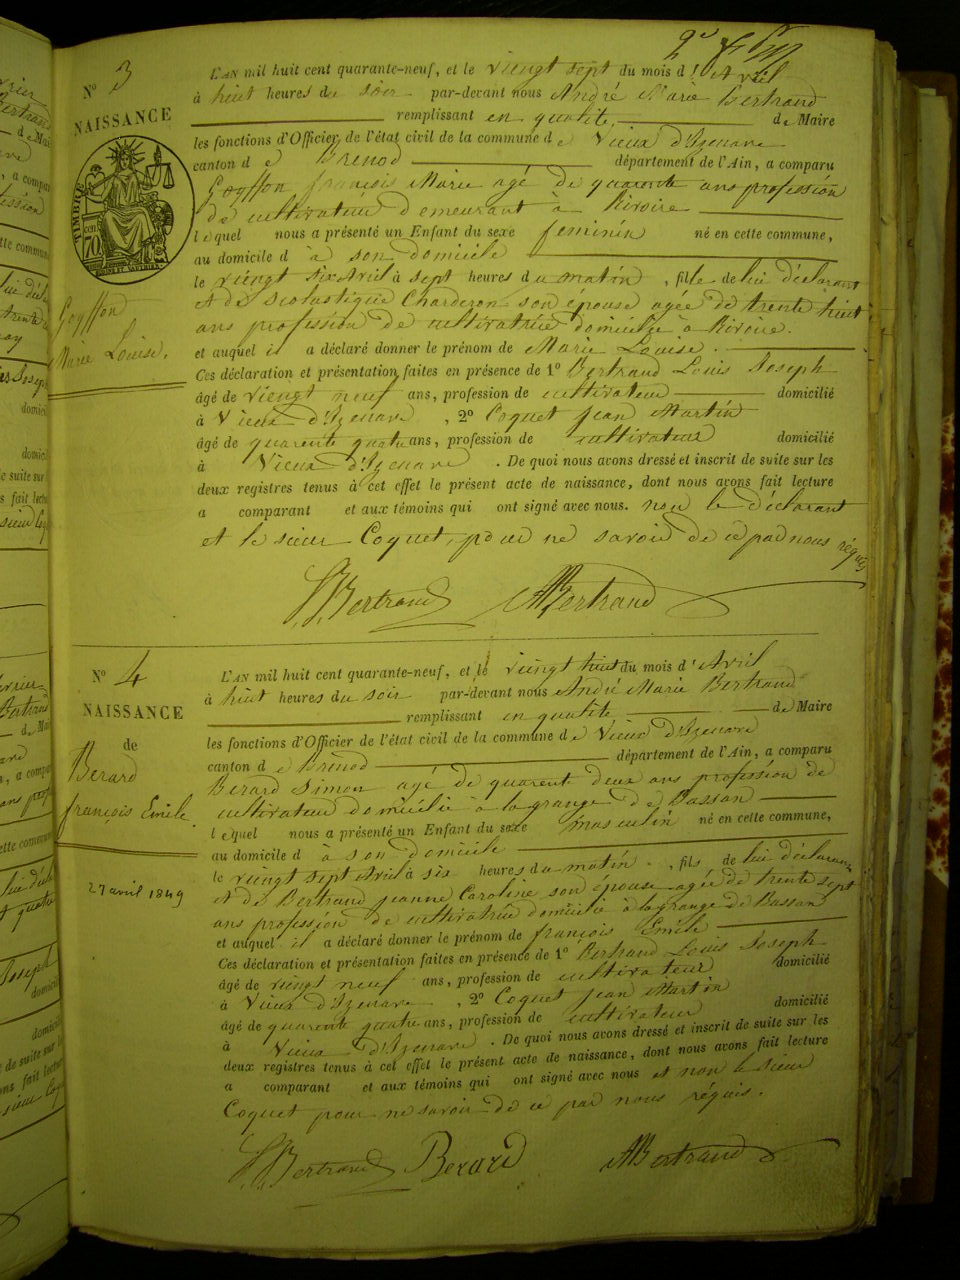 2e f
N° 3
L'AN mil huit cent quarante-neuf, et le viengt sept du mois d'Avril
à huit heures du soir par-devant nous André Marie Bertrand
NAISSANCE
remplissant en qualité de Maire
les fonctions d'Officier de l'état civil de la commune de Vieux d'Izenave
canton de Brenod département de l'Ain, a comparu
Goyffon françois Marie agé de quarente ans profession
de cultivateur demeurant a Rivoire
TIMBRE
cen 70
lequel nous a présenté un Enfant du sexe feminin né en cette commune,
au domicile d à son domicile
le viengt six Avril à sept heures du matin, fille de lui déclarant
Goyffon
Marie Louise.
et de scolastique Charderon son épouse agée de trente huit
ans profession de cultivatrice domiciliée à Rivoire.
et auquel il a déclaré donner le prénom de Marie Louise.
Ces déclaration et présentation faites en présence de 1° Bertrand Louis Joseph
âgé de viengt neuf ans, profession de cultivateur domicilié
à Vieux d'Izenave, 2° Coquet jean Martin
âgé de quarente quatre ans, profession de cultivateur domicilié
à Vieux d'Izenave. De quoi nous avons dressé et inscrit de suite sur les
deux registres tenus à cet effet le présent acte de naissance, dont nous avons fait lecture
a comparant et aux témoins qui ont signé avec nous. non le déclarant
et le sieur Coquet, pour ne savoir de ce par nous réquis
L. Bertrand AMBertrand
N° 4
L'AN mil huit cent quarante-neuf, et le vieingt huit du mois d'Avril
à huit heures du soir par-devant nous André Marie Bertrand
NAISSANCE
remplissant en qualité de Maire
les fonctions d'Officier de l'état civil de la commune de Vieux d'Izenave
de
Berard
françois Emile.
canton de Brenod département de l'Ain, a comparu
Berard Simon agé de quarente deux ans profession de
cultivateur domicilié à la grange de Bassan
lequel nous a présenté un Enfant du sexe masculin né en cette commune,
au domicile d à son domicile
27 avril 1849
le vieingt sept Avril à six heures du matin, fils de lui déclarant
et de Bertrand jeanne Caroline son épouse agée de trente sept
ans profession de cultivatrice domicilié à la grange de Bassan
et auquel il a déclaré donner le prénom de françois Emile
Ces déclaration et présentation faites en présence de 1° Bertrand Louis Joseph
âgé de viengt neuf ans, profession de cultivateur domicilié
à Vieux d'Izenave, 2° Coquet jean Martin
âgé de quarente quatre ans, profession de cultivateur domicilié
à Vieux d'Izenave. De quoi nous avons dressé et inscrit de suite sur les
deux registres tenus à cet effet le présent acte de naissance, dont nous avons fait lecture
a comparant et aux témoins qui ont signé avec nous et non le sieur
Coquet pour ne savoir de ce par nous réquis.
L. Bertrand Berard AMBertrand